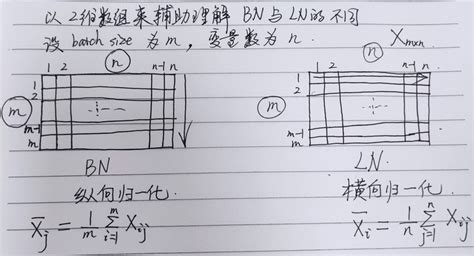 以2维数组来辅助理解 BN与LN的不同
设 batch size 为 m, 变量数为 n. X_{m×n}
n n
1 2 n-1 n 1 2 n-1 n
1 1
2 2
m m
m-1 m-1
m m
BN LN
纵向归一化. 横向归一化.
X̄_j = \frac{1}{m} \sum_{i=1}^{m} X_{ij} X̄_i = \frac{1}{n} \sum_{j=1}^{n} X_{ij}